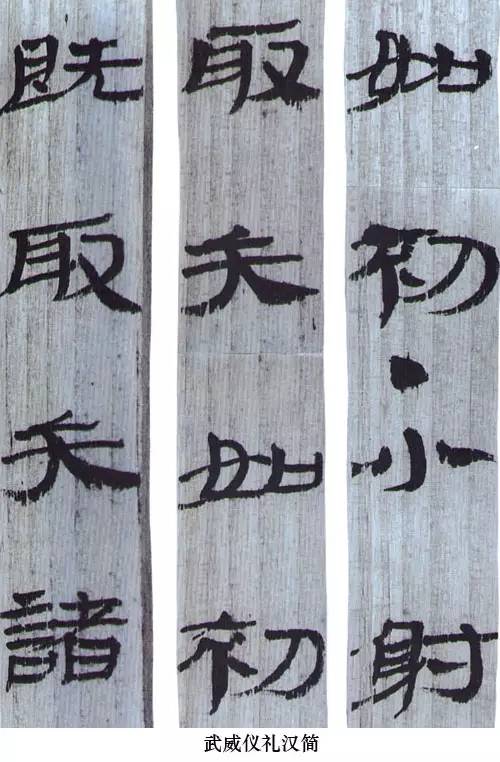 如初●小射
取矢如初
既取矢諸
武威仪礼汉简